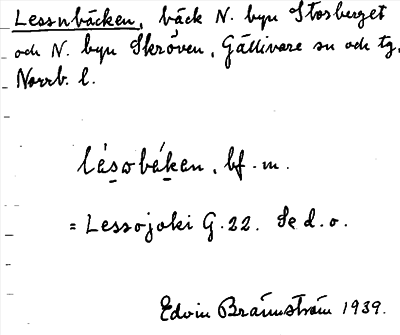 Lessobäcken, bäck N. byn Storberget
och N. byn Skröven, Gällivare sn och tg,
Norrb. l.
lésobéken, bf. m.
= Lessojoki G. 22. Se d. o.
Edvin Brännström 1939.